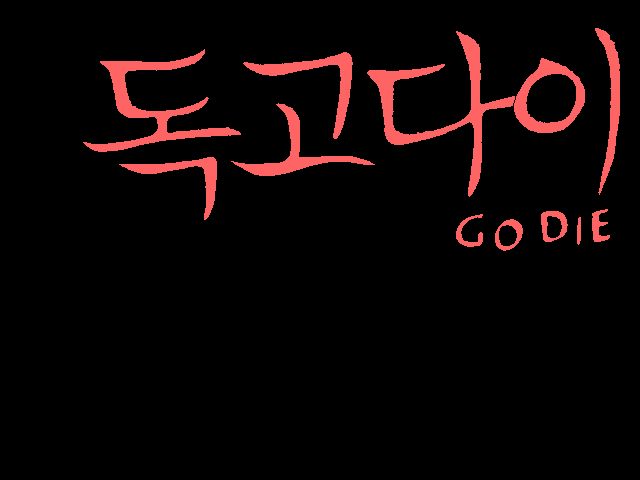 독고다이
GO DIE